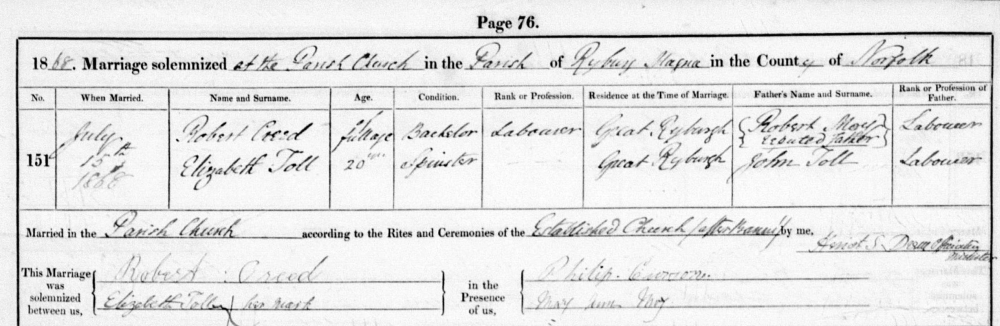 Page 76.
1868. Marriage solemnized at the Parish Church in the Parish of Ryburgh Magna in the County of Norfolk
No. When Married. Name and Surname. Age. Condition. Rank or Profession. Residence at the Time of Marriage. Father's Name and Surname. Rank or Profession of Father.
151 July 15th 1868
Robert Creed full age Bachelor Labourer Great Ryburgh Robert reputed father Labourer
Elizabeth Toll 20 Spinster Great Ryburgh John Toll Labourer
Married in the Parish Church according to the Rites and Ceremonies of the Established Church after Banns by me,
Officiating Minister
This Marriage was solemnized between us,
Robert Creed
Elizabeth Toll her mark
in the Presence of us,
Philip